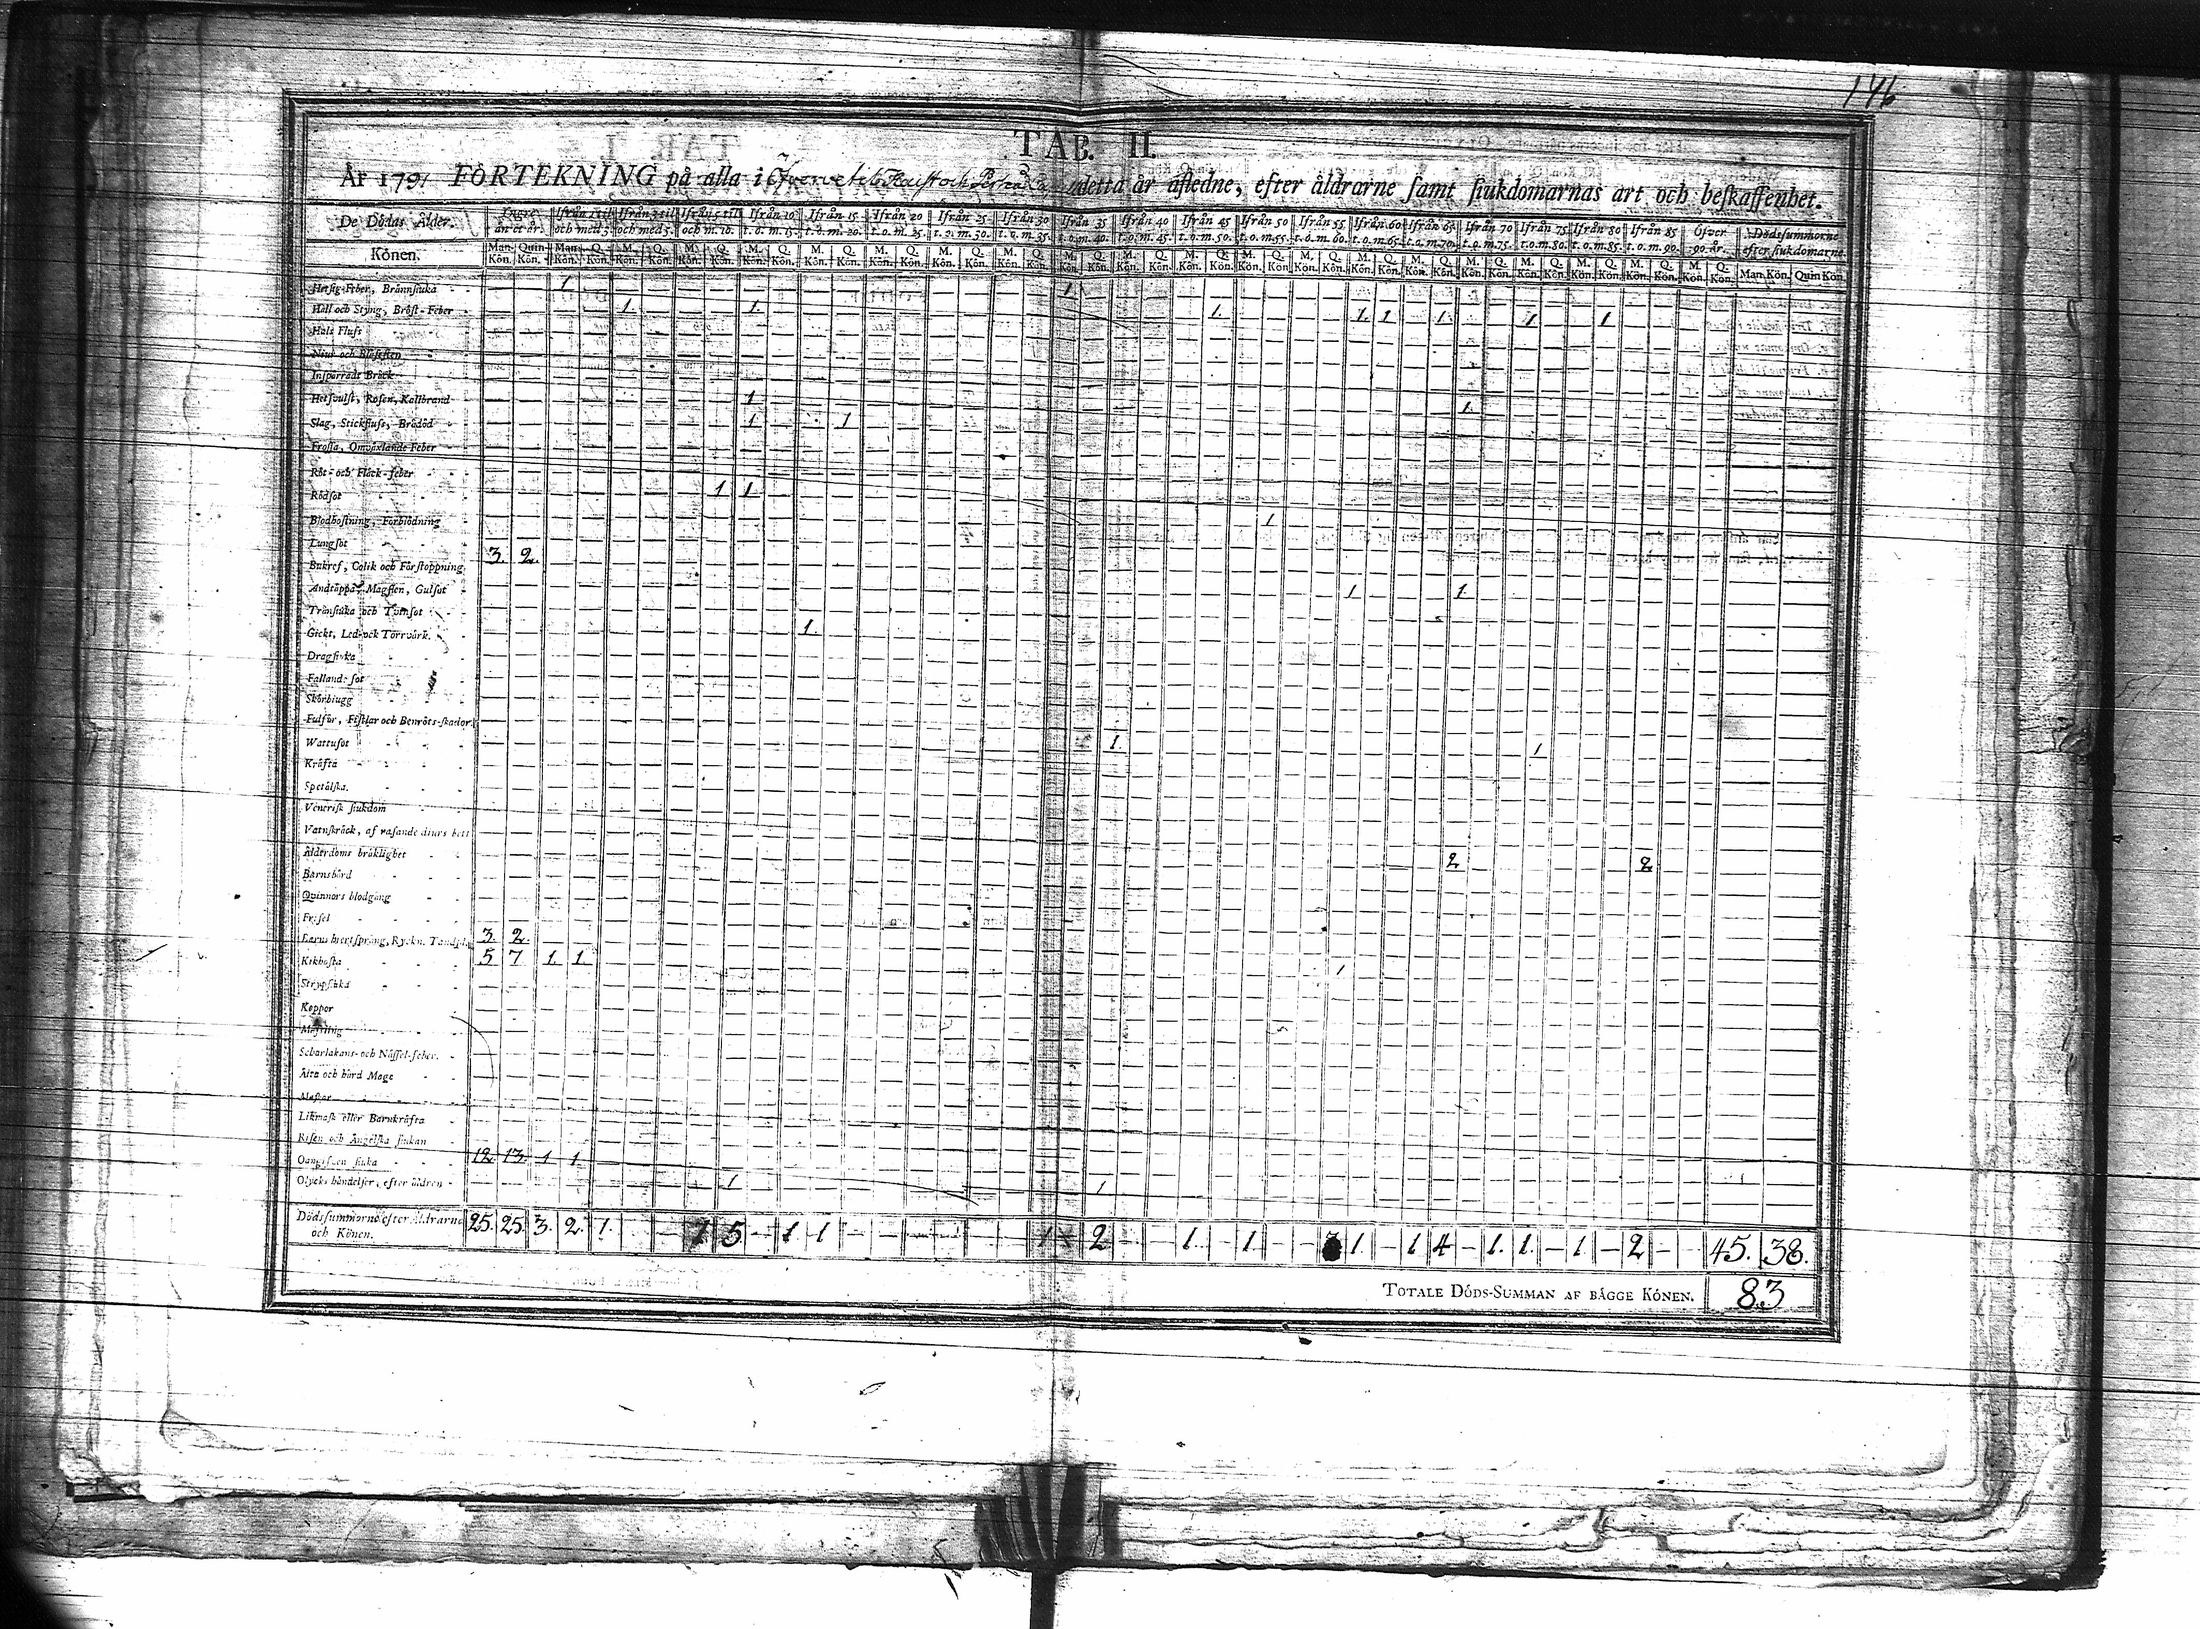 146
TAB. II.
År 1791 FÖRTEKNING på alla i detta år afledne, efter åldrarne samt siukdomarnas art och beskaffenhet.
De Dödas Ålder. Yngre än et år. Ifrån 1 til och med 3. Ifrån 3 til och med 5. Ifrån 5 til och m. 10. Ifrån 10 t. o. m. 15. Ifrån 15 t. o. m. 20. Ifrån 20 t. o. m. 25. Ifrån 25 t. o. m. 30. Ifrån 30 t. o. m. 35. Ifrån 35 t. o. m. 40. Ifrån 40 t. o. m. 45. Ifrån 45 t. o. m. 50. Ifrån 50 t. o. m. 55. Ifrån 55 t. o. m. 60. Ifrån 60 t. o. m. 65. Ifrån 65 t. o. m. 70. Ifrån 70 t. o. m. 75. Ifrån 75 t. o. m. 80. Ifrån 80 t. o. m. 85. Ifrån 85 t. o. m. 90. Öfver 90 år. Dödssummorne efter siukdomarne.
Könen. Man-Kön. Quin-Kön. Man-Kön. Q. Kön. M. Kön. Q. Kön. M. Kön. Q. Kön. M. Kön. Q. Kön. M. Kön. Q. Kön. M. Kön. Q. Kön. M. Kön. Q. Kön. M. Kön. Q. Kön. M. Kön. Q. Kön. M. Kön. Q. Kön. M. Kön. Q. Kön. M. Kön. Q. Kön. M. Kön. Q. Kön. M. Kön. Q. Kön. M. Kön. Q. Kön. M. Kön. Q. Kön. M. Kön. Q. Kön. M. Kön. Q. Kön. M. Kön. Q. Kön. M. Kön. Q. Kön. Man.Kön. Quin Kön
Hetsig-Feber, Brännsiuka 1 1
Håll och Styng, Bröst-Feber 1. 1. 1. 1. 1 1. 1 1
Hals Fluss
Niur och Blåsesten
Insparrade Bråck
Hetsvulst, Rosen, Kallbrand 1 1.
Slag, Stickfluss, Brådöd 1 1
Frossa, Omväxlande Feber
Röt- och Fläck-feber
Rödsot 1 1
Blodhostning, Förblödning 1
Lungsot
Bukref, Colik och Förstoppning 3. 2.
Andtäppa, Magsten, Gulsot 1 1.
Tränsiuka och Tvinsot
Gickt, Led- och Torrvärk. 1.
Dragsiuka
Fallande sot
Skörbiugg
Fulsår, Fistlar och Benröts-skador
Wattusot 1. 1
Kräfta
Spetälska.
Venerisk siukdom
Vatnskräck, af rasande diurs bett
Ålderdoms bräklighet 2 2
Barnsbörd
Quinnors blodgång
Frisel
3. 2.
Kikhosta 5 7 1. 1. 1
Strypsiuka
Koppor
Mässling
Scharlakans- och Nässel-feber.
Älta och hård Mage
Maskar
Likmask eller Barnkräfta
Risen och Ängelska siukan
Oangifven siuka 12. 13. 1 1.
Olycks händelser, efter åldren 1 1
Dödssummorne efter åldrarne och Könen. 25. 25. 3. 2. 1. 1 5 1 1 1 2 1. 1. 1. 1 4 1. 1. 1 2 45. 38.
TOTALE DÖDS-SUMMAN AF BÅGGE KÖNEN. 83